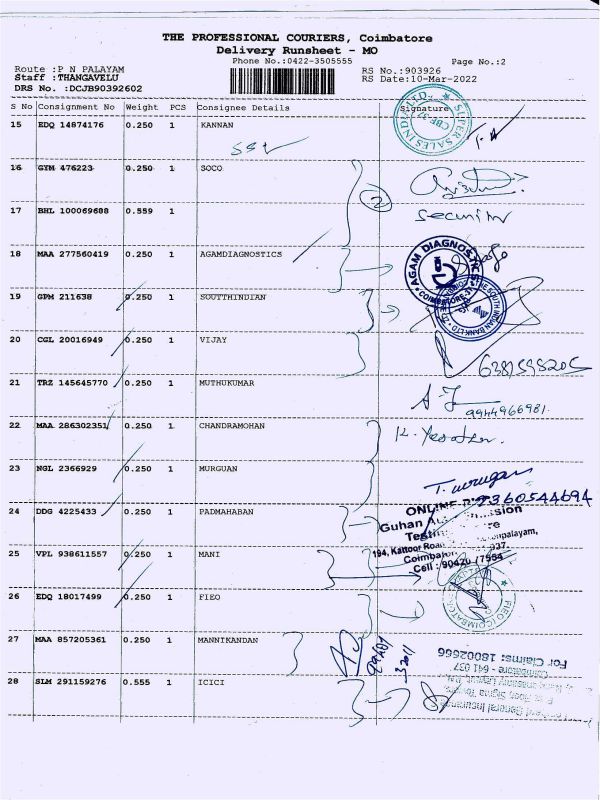 THE PROFESSIONAL COURIERS, Coimbatore
Delivery Runsheet - MO
Phone No.:0422-3505555
Page No.:2
Route :P N PALAYAM
RS No.:903926
Staff :THANGAVELU
RS Date:10-Mar-2022
DRS No. :DCJB90392602
S No Consignment No Weight PCS Consignee Details Signature
15 EDQ 14874176 0.250 1 KANNAN
SUPER SALES INDIA LTD
CBE-37
16 GYM 476223 0.250 1 SOCO
2
17 BHL 100069688 0.559 1
security
18 MAA 277560419 0.250 1 AGAMDIAGNOSTICS
AGAM DIAGNOSTICS
COIMBATORE-37
19 GPM 211638 0.250 1 SOUTTHINDIAN
THE SOUTH INDIAN BANK LTD
20 CGL 20016949 0.250 1 VIJAY
6381598205
21 TRZ 145645770 0.250 1 MUTHUKUMAR
9944966981
22 MAA 286302351 0.250 1 CHANDRAMOHAN
23 NGL 2366929 0.250 1 MURGUAN
T. murugan
9360544694
24 DDG 4225433 0.250 1 PADMAHABAN
ONLINE
Guhan
194, Kattoor Road
Coimbatore
Cell : 90420 77554
25 VPL 938611557 0.250 1 MANI
26 EDQ 18017499 0.250 1 FIEO
FIEO
27 MAA 857205361 0.250 1 MANNIKANDAN
For Claims: 18002666
Coimbatore - 641 037
28 SLM 291159276 0.555 1 ICICI
General Insurance